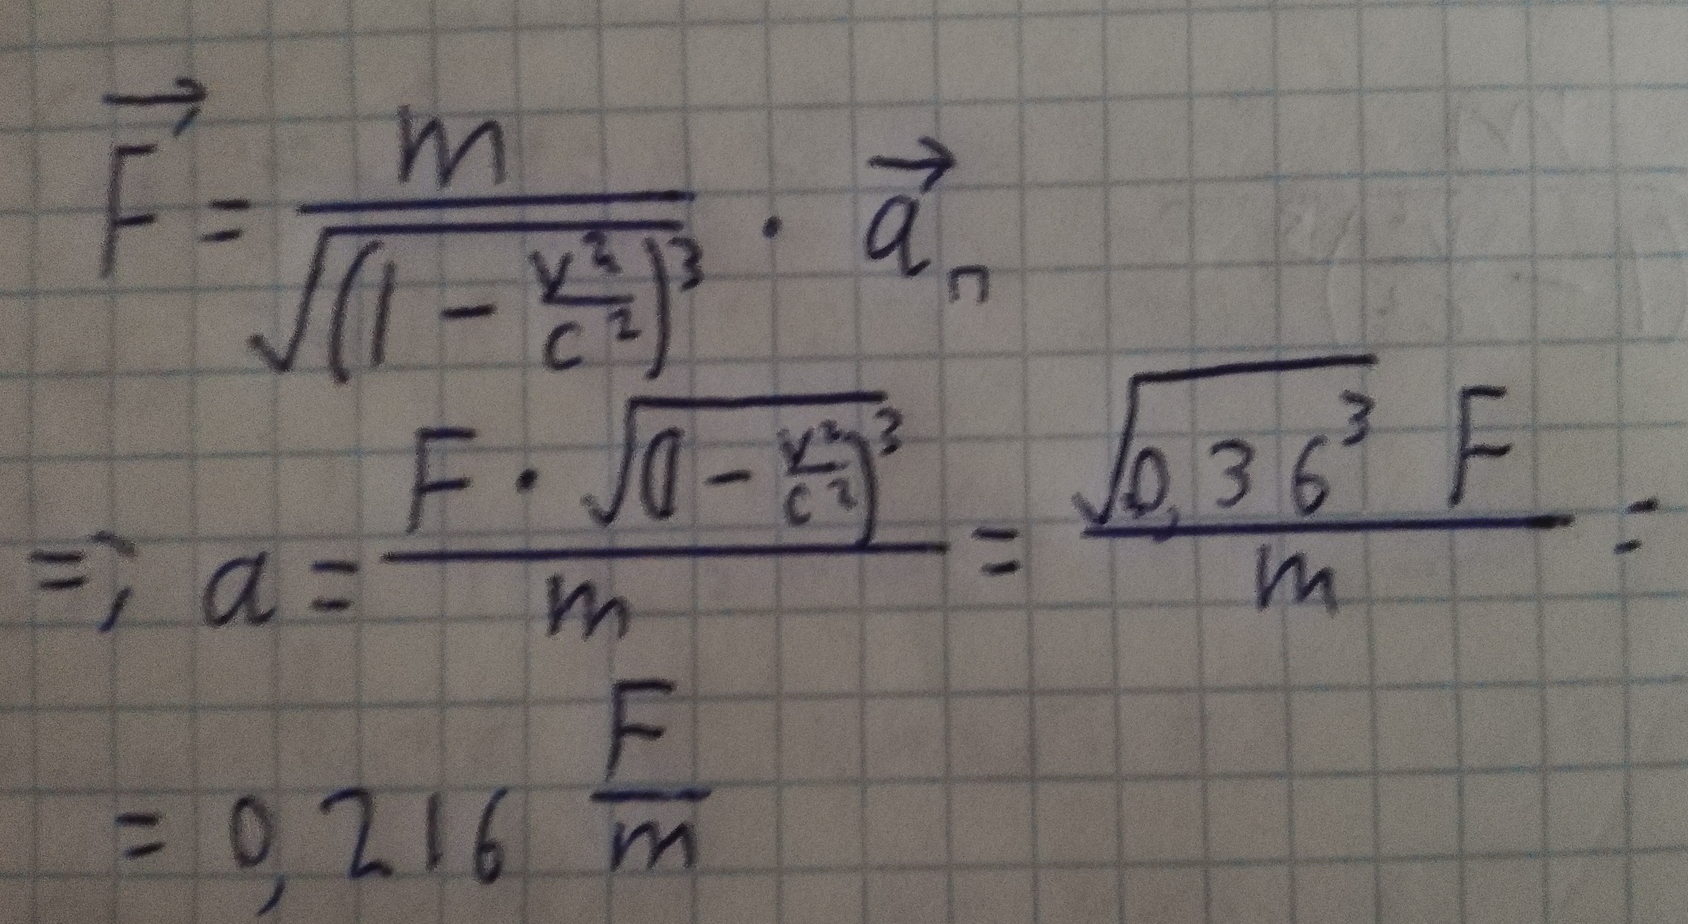 $\vec{F} = \frac{m}{\sqrt{(1 - \frac{v^2}{c^2})^3}} \cdot \vec{a}_n$
$\Rightarrow ; a = \frac{F \cdot \sqrt{(1 - \frac{v^2}{c^2})^3}}{m} = \frac{\sqrt{0,36^3} F}{m} =$
$= 0,216 \frac{F}{m}$